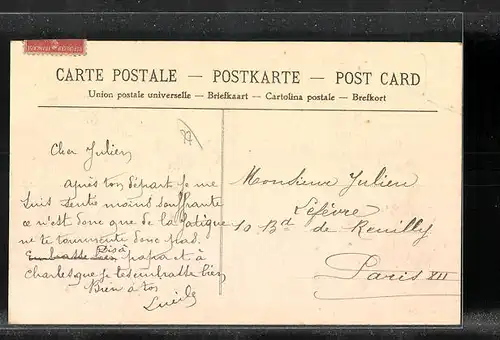 CARTE POSTALE — POSTKARTE — POST CARD
Union postale universelle — Briefkaart — Cartolina postale — Brefkort
Cher Julien
après ton départ je me
suis sentie moins souffrante
ce n'est donc que de la fatigue
ne te tourmente donc pas.
Dis à
Embrasse bien papa et à
Charles que je les embrasse bien
Bien à toi
Lucile
Monsieur Julien
Lefèvre
10 Bd de Reuilly
Paris XII